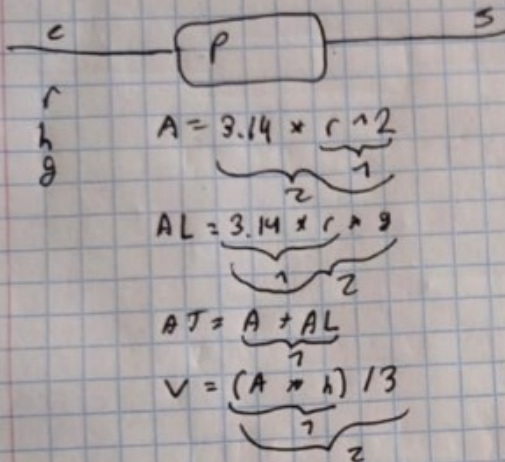 e P s
r
h
g
A = 3.14 * r ^ 2
1
2
AL = 3.14 * r * g
1
2
AT = A + AL
1
V = (A * h) / 3
1
2